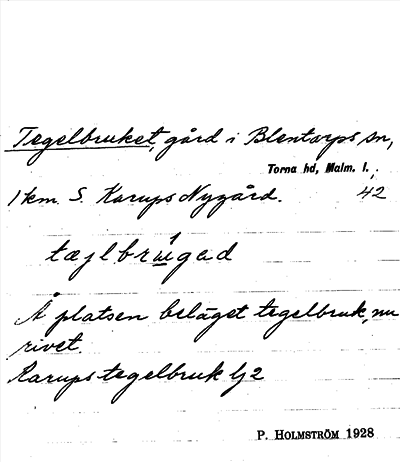 Tegelbruket, gård i Blentarps sn,
Torna hd, Malm. l.
1 km. S. Karups Nygård. 42
Å platsen beläget tegelbruk, nu
rivet.
Karups tegelbruk
P. HOLMSTRÖM 1928